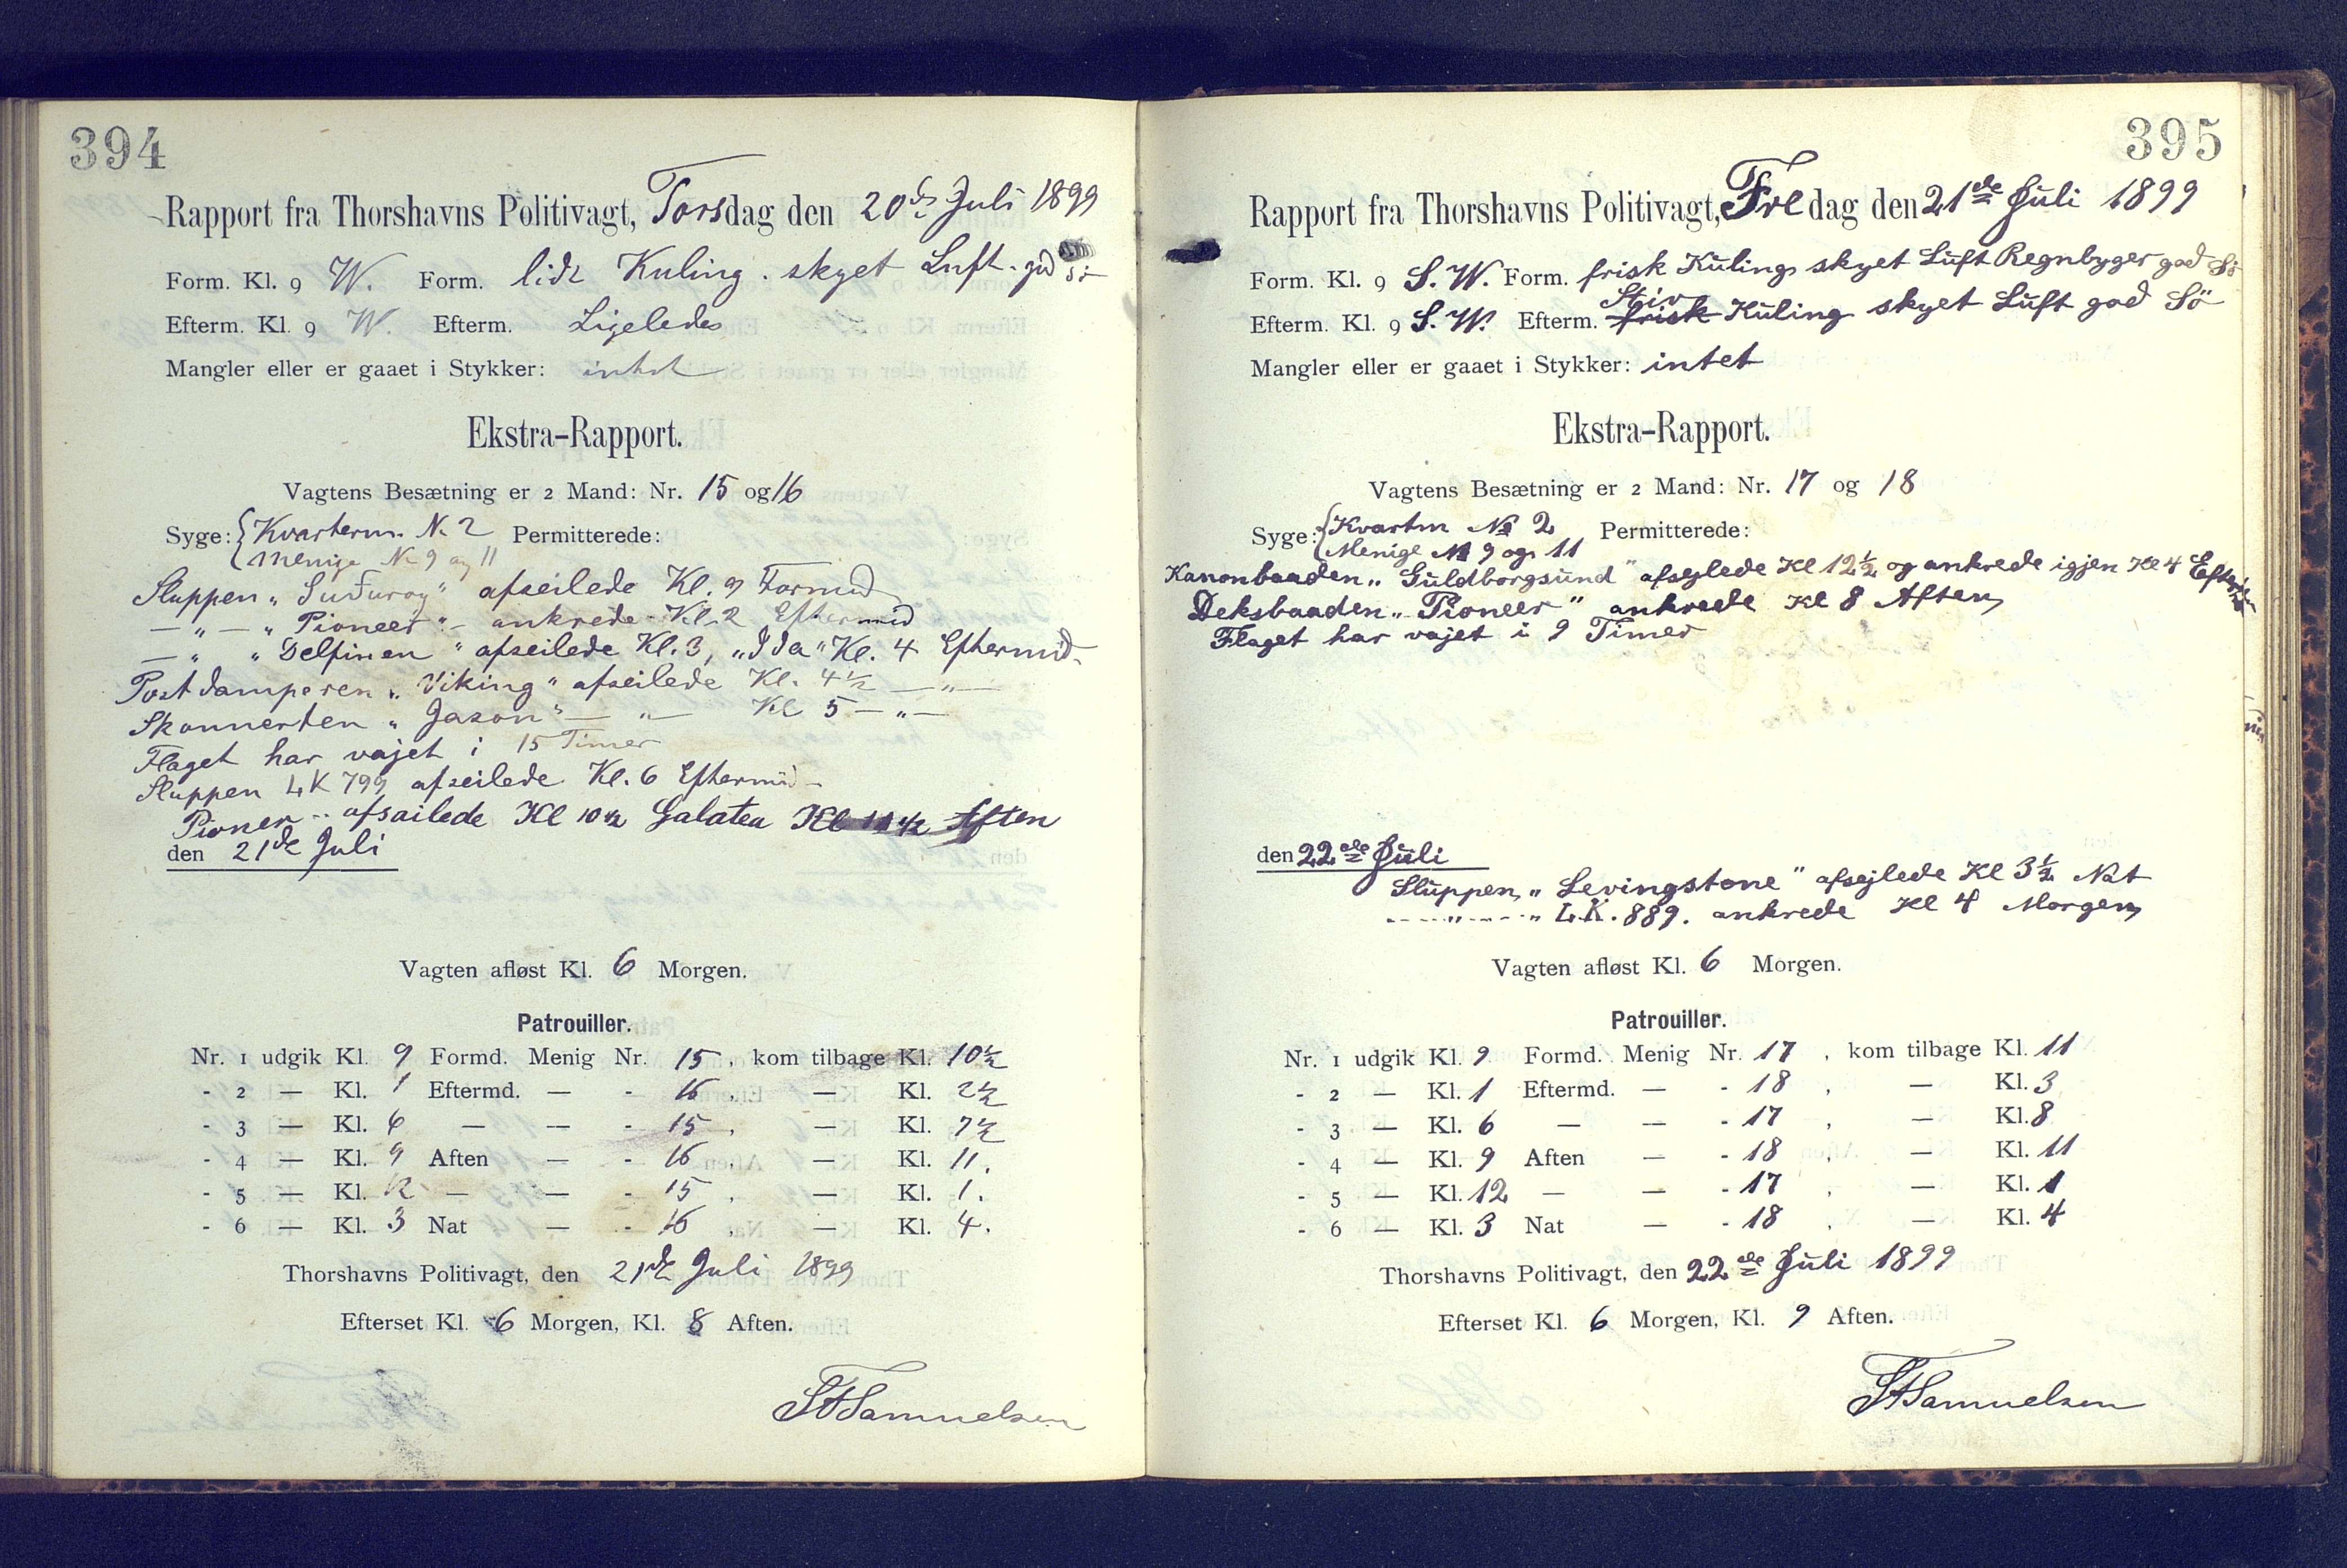 394
Rapport fra Thorshavns Politivagt, Torsdag den 20de Juli 1899
Form. Kl. 9 W. Form. lidt Kuling. skyet Luft. god Sö
Efterm. Kl. 9 W. Efterm. Ligeledes
Mangler eller er gaaet i Stykker: intet
Ekstra-Rapport.
Vagtens Besætning er 2 Mand: Nr. 15 og 16
Syge: { Kvarterm. N. 2 Permitterede:
Menige N 9 og 11
Sluppen „Suduroy" afseilede Kl. 9 Formid
— „ — „Pioneer" — ankrede Kl. 2 Eftermid
— „ „Delfinen" afseilede Kl. 3, „Ida" Kl. 4 Eftermid.
Postdamperen „Viking" afseilede Kl. 4½ — „ —
Skonnerten „Jason" — „ — Kl 5 — „ —
Flaget har vajet i 15 Timer
Sluppen LK 799 afseilede Kl. 6 Eftermid
Pioner .. afsailede Kl 10½ Galatea Kl 11½ Aften
den 21de Juli
Vagten afløst Kl. 6 Morgen.
Patrouiller.
Nr. 1 udgik Kl. 9 Formd. Menig Nr. 15, kom tilbage Kl. 10½
- 2 — Kl. 1 Eftermd. — - 16, — Kl. 2½
- 3 — Kl. 6 — — - 15, — Kl. 7½
- 4 — Kl. 9 Aften — - 16, — Kl. 11.
- 5 — Kl. 12 — — - 15, — Kl. 1.
- 6 — Kl. 3 Nat — - 16, — Kl. 4.
Thorshavns Politivagt, den 21de Juli 1899
Efterset Kl. 6 Morgen, Kl. 8 Aften.
Samuelsen
395
Rapport fra Thorshavns Politivagt, Fredag den 21de Juli 1899
Form. Kl. 9 S. W. Form. frisk Kuling skyet Luft Regnbyger god Sö
Stiv
Efterm. Kl. 9 S. W. Efterm. frisk Kuling skyet Luft god Sö
Mangler eller er gaaet i Stykker: intet
Ekstra-Rapport.
Vagtens Besætning er 2 Mand: Nr. 17 og 18
Syge: { Kvartm No 2 Permitterede:
Menige No 9 og 11
Kanonbaaden „Guldborgsund" afsejlede Kl 12½ og ankrede igjen Kl 4
Deksbaaden „Pioneer" ankrede Kl 8 Aften
Flaget har vajet i 9 Timer
den 22de Juli
Sluppen „Levingstone" afsejlede Kl 3½ Nat
---- „ ---- „ L.K. 889. ankrede Kl 4 Morgen
Vagten afløst Kl. 6 Morgen.
Patrouiller.
Nr. 1 udgik Kl. 9 Formd. Menig Nr. 17, kom tilbage Kl. 11
- 2 — Kl. 1 Eftermd. — - 18, — Kl. 3
- 3 — Kl. 6 — — - 17, — Kl. 8
- 4 — Kl. 9 Aften — - 18, — Kl. 11
- 5 — Kl. 12 — — - 17, — Kl. 1
- 6 — Kl. 3 Nat — - 18, — Kl. 4
Thorshavns Politivagt, den 22de Juli 1899
Efterset Kl. 6 Morgen, Kl. 9 Aften.
Samuelsen